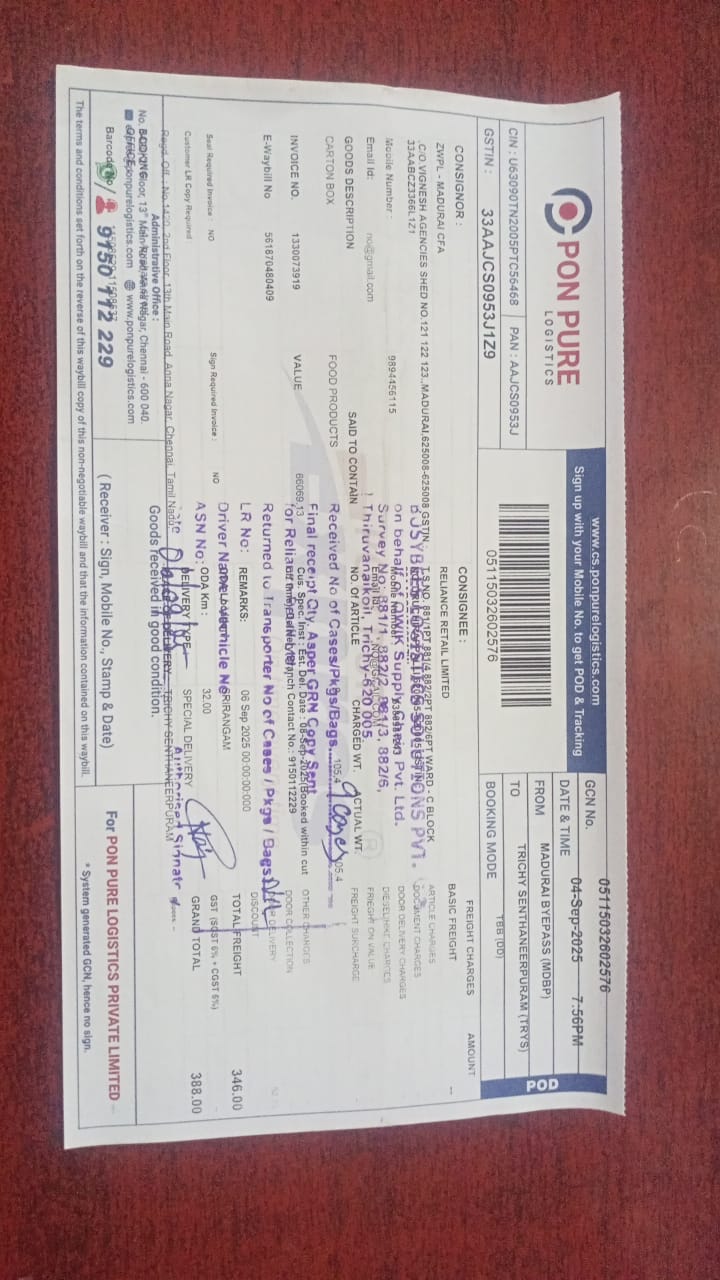 PON PURE
LOGISTICS
CIN : U63090TN2005PTC56468 PAN : AAJCS0953J
GSTIN : 33AAJCS0953J1Z9
www.cs.ponpurelogistics.com
Sign up with your Mobile No. to get POD & Tracking
05115032602576
GCN No. 05115032602576
DATE & TIME 04-Sep-2025 7:56PM
FROM MADURAI BYEPASS (MDBP)
TO TRICHY SENTHANEERPURAM (TRYS)
BOOKING MODE TBB (DD)
POD
CONSIGNOR :
ZWPL - MADURAI CFA
C/O VIGNESH AGENCIES SHED NO.121 122 123.,MADURAI,625008-625008 GSTIN
33AABCZ3366L1Z1
Mobile Number : 9894456115
Email Id: no@gmail.com
CONSIGNEE :
RELIANCE RETAIL LIMITED
T.S.NO. 881/1PT 881/4 882/2PT 882/6PT WARD - C BLOCK
on behalf of QWIK Supply Chain Pvt. Ltd.
Survey No: 881/1, 882/2, 881/3, 882/6,
Thiruvanaikoil, Trichy-620 005
GOODS DESCRIPTION SAID TO CONTAIN NO. OF ARTICLE CHARGED WT. ACTUAL WT.
CARTON BOX FOOD PRODUCTS 105.4 105.4
Received No of Cases/Pkgs/Bags 9 Cases
INVOICE NO. 1330073919 VALUE 66069.13
Final receipt Qty. Asper GRN Copy Sent
Cus. Spec. Inst : Est. Del. Date : 08-Sep-2025 Booked within cut
for Reliance
Branch Contact No.: 9150112229
E-Waybill No 561870480409
Returned to Transporter No of Cases / Pkgs / Bags
LR No: REMARKS: 06 Sep 2025 00:00:00:000
Driver Name SRIRANGAM
Seal Required Invoice : NO Sign Required Invoice : NO
ASN No: ODA Km : 32.00
Customer LR Copy Required
DELIVERY TYPE SPECIAL DELIVERY
Authorised
FREIGHT CHARGES AMOUNT
BASIC FREIGHT --
ARTICLE CHARGES
DOCUMENT CHARGES
DOOR DELIVERY CHARGES
FREIGHT ON VALUE
FREIGHT SURCHARGE
OTHER CHARGES
DOOR COLLECTION
DISCOUNT
TOTAL FREIGHT 346.00
GST (SGST 6% + CGST 6%)
GRAND TOTAL 388.00
Regd. Off. : 2nd Floor, 13th Main Road, Anna Nagar, Chennai, Tamil Nadu
Administrative Office :
Nagar, Chennai - 600 040.
www.ponpurelogistics.com
9150 112 229
Goods received in good condition.
( Receiver : Sign, Mobile No., Stamp & Date)
For PON PURE LOGISTICS PRIVATE LIMITED
The terms and conditions set forth on the reverse of this waybill copy of this non-negotiable waybill and that the information contained on this waybill.
* System generated GCN, hence no sign.